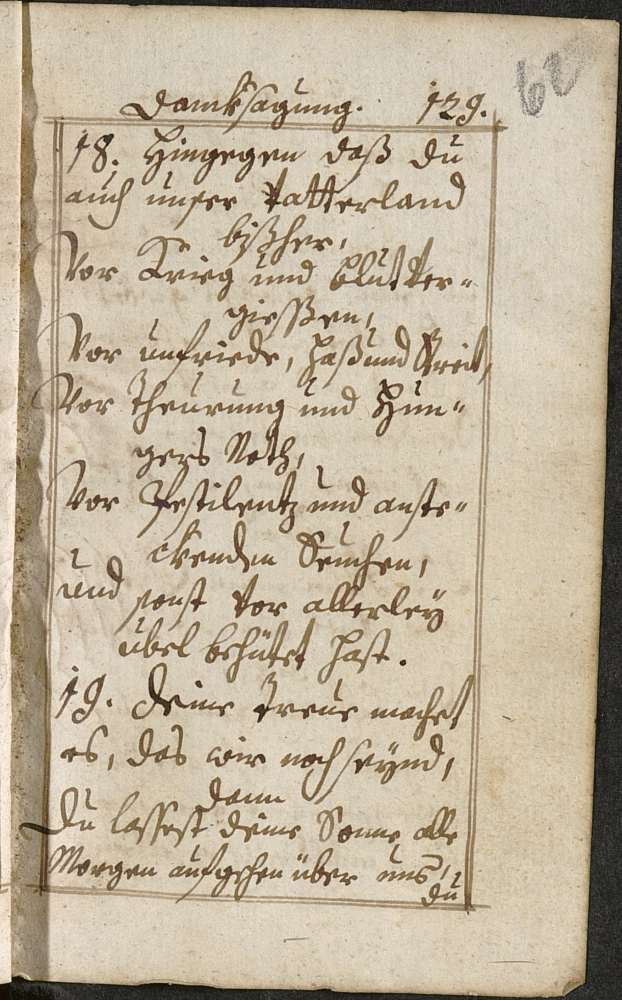 Dancksagung. 129.
62
18. Hingegen daß du
auch unser Vatterland
bißher,
Vor Krieg und Blutver-
giessen,
Vor unfriede, Haß und Streit,
Vor Theurung und Hun-
gers Noth,
Vor Pestilentz und anste-
ckenden Seuchen,
und sonst vor allerley
übel behütet hast.
19. Deine Treue machet
es, das wir noch seynd,
dann
Du lassest deine Sonne alle
Morgen aufgehen über uns,
du